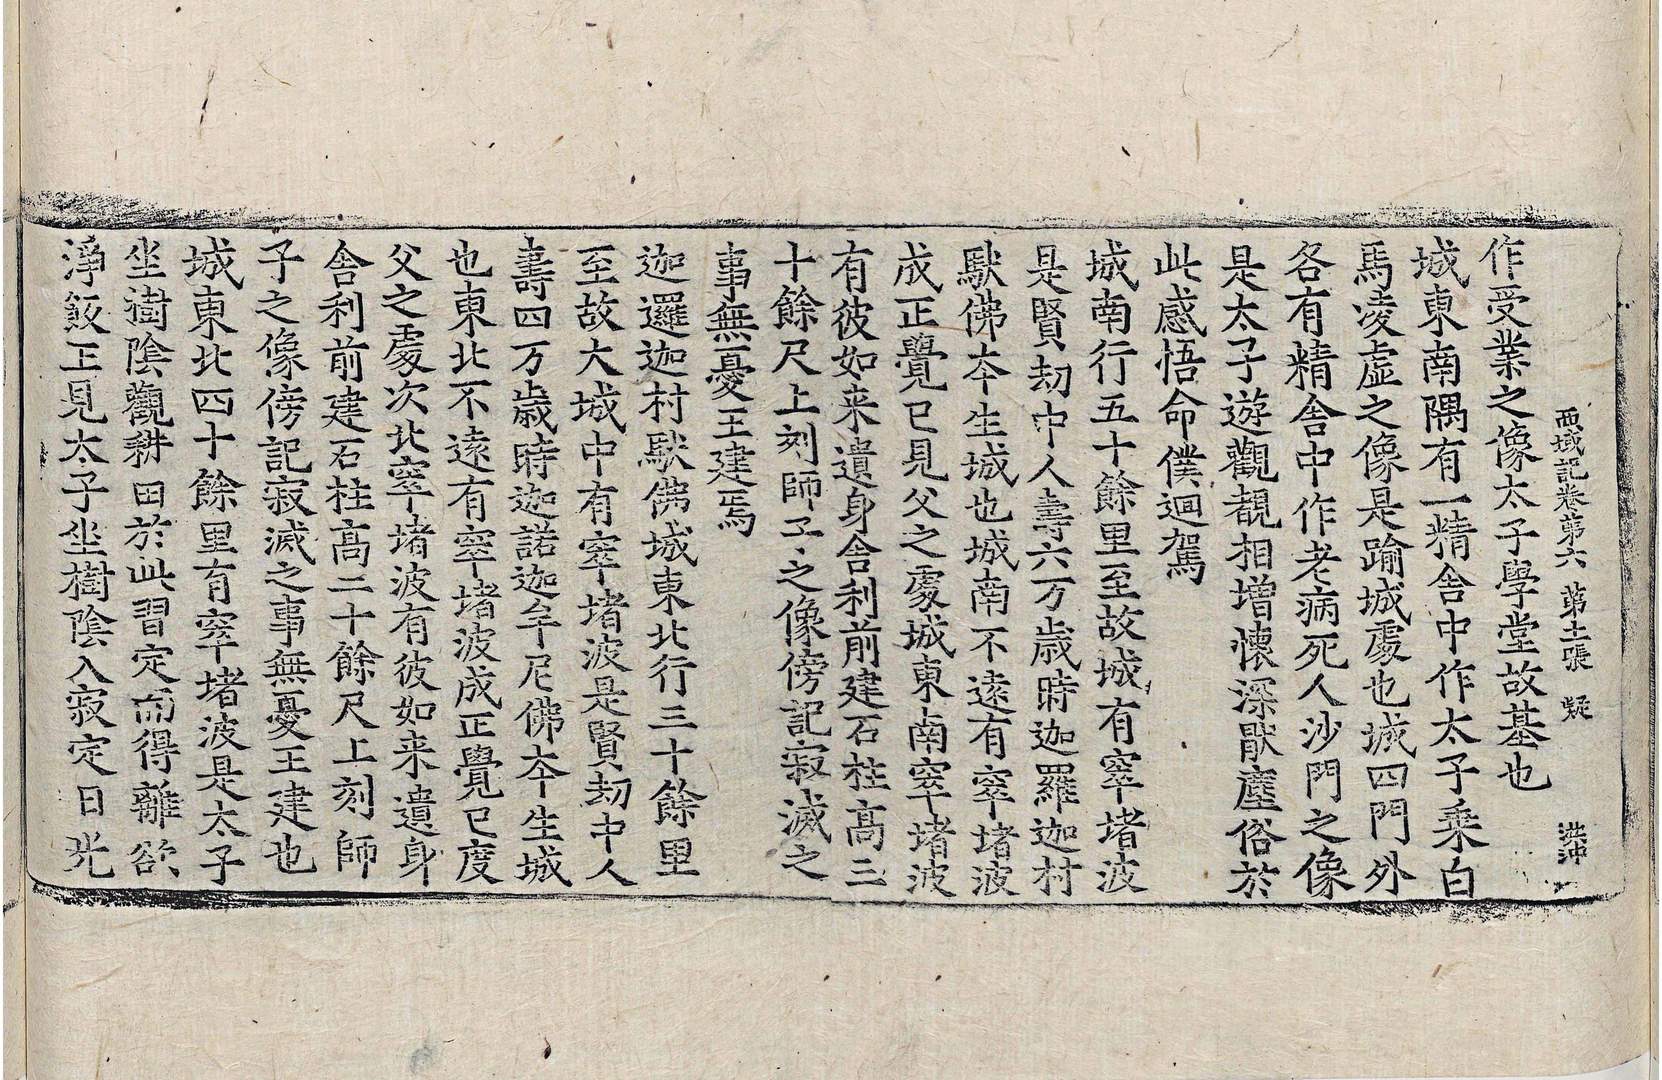 西域記卷第六 第十二張 疑 洪沖
作受業之像太子學堂故基也
城東南隅有一精舍中作太子乘白
馬凌虛之像是踰城處也城四門外
各有精舍中作老病死人沙門之像
是太子遊觀覩相增懷深猒塵俗於
此感悟命僕迴駕
城南行五十餘里至故城有窣堵波
是賢劫中人壽六万歲時迦羅迦村
馱佛夲生城也城南不遠有窣堵波
成正覺已見父之處城東南窣堵波
有彼如来遺身舍利前建石柱髙三
十餘尺上刻師子之像傍記寂滅之
事無憂王建焉
迦邏迦村馱佛城東北行三十餘里
至故大城中有窣堵波是賢劫中人
壽四万歲時迦諾迦牟尼佛夲生城
也東北不遠有窣堵波成正覺已度
父之處次北窣堵波有彼如来遺身
舍利前建石柱髙二十餘尺上刻師
子之像傍記寂滅之事無憂王建也
城東北四十餘里有窣堵波是太子
坐樹陰觀耕田於此習定而得離欲
淨飯王見太子坐樹陰入寂定日光